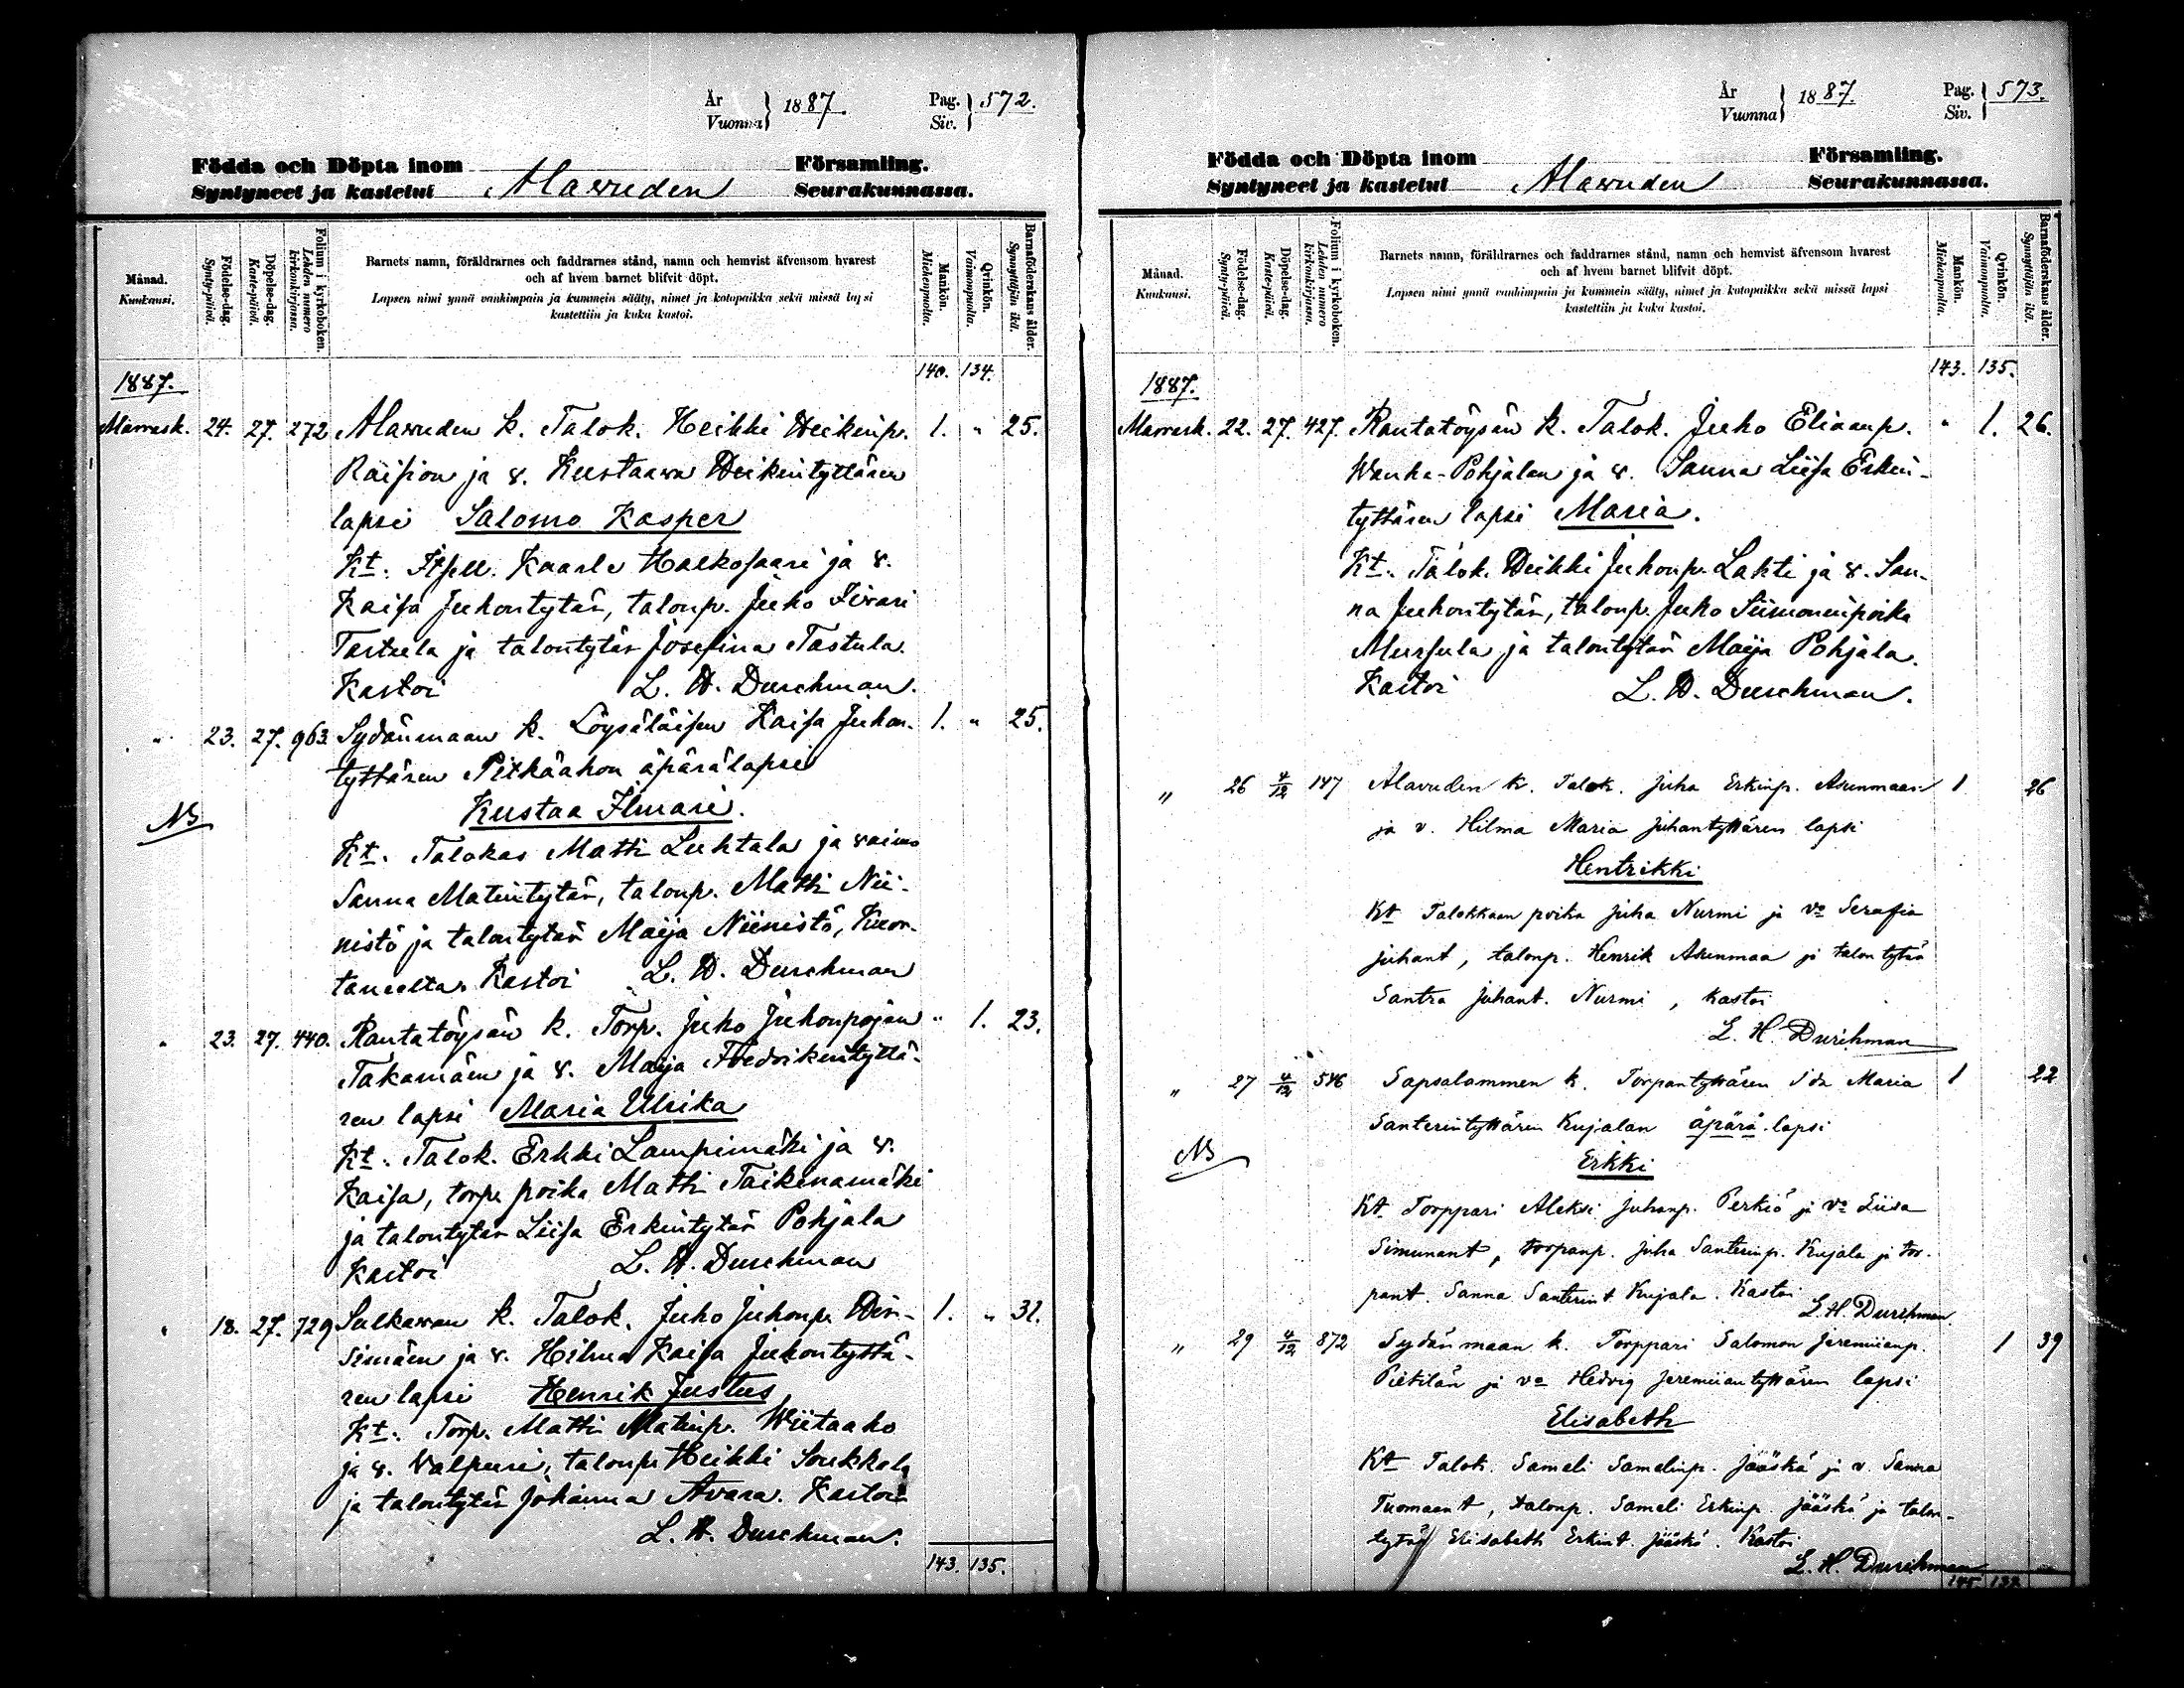 År
Vuonna } 1887.
Pag.
Siv. } 572.
Födda och Döpta inom
Syntyneet ja kastetut Alavuden
Församling.
Seurakunnassa.
Månad.
Kuukausi.
Födelse-dag.
Synty-päivä.
Döpelse-dag.
Kaste-päivä.
Folium i kyrkoboken.
Lehden numero kirkonkirjassa.
Barnets namn, föräldrarnes och faddrarnes stånd, namn och hemvist äfvensom hvarest
och af hvem barnet blifvit döpt.
Lapsen nimi ynnä vanhimpain ja kummein sääty, nimet ja kotopaikka sekä missä lapsi
kastettiin ja kuka kastoi.
Mankön.
Miehenpuolta.
Qvinkön.
Vaimonpuolta.
Barnaföderskans ålder.
Synnyttäjän ikä.
1887. 140. 134.
Marrask. 24. 27. 272 Alavuden k. Talok. Heikki Heikinp. 1. " 25.
Raision ja v. Kustaava Heikintyttären
lapsi Salomo Kasper
Kt. Itsell. Kaarle Halkosaari ja v.
Kaisa Juhontytär, talonp. Juho Iivari
Tastula ja talontytär Josefina Tastula.
Kastoi L. H. Durchman.
" 23. 27. 963 Sydänmaan k. Löysäläisen Kaisa Juhon- 1. " 25.
tyttären Pitkäahon äpärälapsi
Kustaa Ilmari.
NB
Kt. Talokas Matti Luhtala ja vaimo
Sanna Matintytär, talonp. Matti Nii-
nistö ja talontytär Maija Niinistö, Kuor-
taneelta. Kastoi L. H. Durchman
" 23. 27. 440. Rantatöysän k. Torp. Juho Juhonpojan " 1. 23.
Takamäen ja v. Maija Fredrikintyttä-
ren lapsi Maria Ulrika
Kt. Talok. Erkki Lampimäki ja v.
Kaisa, torp. poika Matti Taikinamäki
ja talontytär Liisa Erkintytär Pohjala
Kastoi L. H. Durchman
" 18. 27. 729 Sulkavan k. Talok. Juho Juhonp. Hir- 1. " 31.
simäen ja v. Hilma Kaisa Juhontyttä-
ren lapsi Henrik Justus
Kt. Torp. Matti Matinp. Wiitaaho
ja v. Valpuri, talonp. Heikki Soukkala
ja talontytär Johanna Avara. Kastoi
L. H. Durchman.
143. 135.
År
Vuonna } 1887.
Pag.
Siv. } 573.
Födda och Döpta inom
Syntyneet ja kastetut Alavuden
Församling.
Seurakunnassa.
Månad.
Kuukausi.
Födelse-dag.
Synty-päivä.
Döpelse-dag.
Kaste-päivä.
Folium i kyrkoboken.
Lehden numero kirkonkirjassa.
Barnets namn, föräldrarnes och faddrarnes stånd, namn och hemvist äfvensom hvarest
och af hvem barnet blifvit döpt.
Lapsen nimi ynnä vanhimpain ja kummein sääty, nimet ja kotopaikka sekä missä lapsi
kastettiin ja kuka kastoi.
Mankön.
Miehenpuolta.
Qvinkön.
Vaimonpuolta.
Barnaföderskans ålder.
Synnyttäjän ikä.
1887. 143. 135.
Marrask. 22. 27. 427. Rantatöysän k. Talok. Juho Eliaanp. " 1. 26.
Wanha-Pohjalan ja v. Sanna Liisa Erkin-
tyttären lapsi Maria.
Kt. Talok. Heikki Juhonp. Lahti ja v. San-
na Juhontytär, talonp. Juho Siimoninpoika
Mursula ja talontytär Maija Pohjala.
Kastoi L. H. Durchman.
" 26 4/12 147 Alavuden k. Talok. Juha Erkinp. Asunmaan 1 26
ja v. Hilma Maria Juhantyttären lapsi
Hentrikki
Kt Talokkaan poika Juha Nurmi ja vo Serafia
Juhant, talonp. Henrik Asunmaa ja talontytär
Santra Juhant. Nurmi, kastoi
L. H. Durchman
" 27 4/12 546 Sapsalammen k. Torpantyttären Ida Maria 1 22
Santerintyttären Kujalan äpärä lapsi
NB
Erkki
Kt Torppari Aleksi Juhanp. Perkiö ja vo Liisa
Simunant, torpanp. Juha Santerinp. Kujala ja tor-
pant. Sanna Santerint Kujala. Kastoi
L. H. Durchman
" 29 4/12 872 Sydänmaan k. Torppari Salomon Jeremiianp. 1 39
Pietilän ja vo Hedvig Jeremiiantyttären lapsi
Elisabeth
Kt Talok. Sameli Samelinp. Jääskä ja v. Sanna
Tuomaant, talonp. Sameli Erkinp. Jääskä ja talon-
tytär Elisabeth Erkint. Jääskä. Kastoi
L. H. Durchman
145